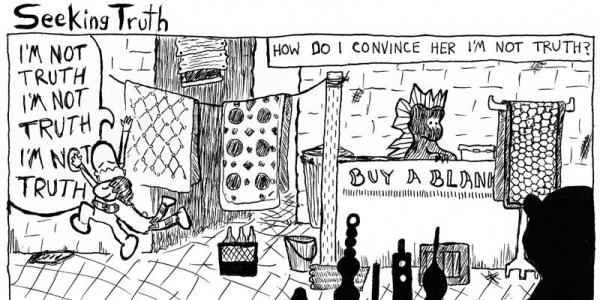 Seeking Truth
I'M NOT
TRUTH
I'M NOT
TRUTH
I'M NOT
TRUTH
HOW DO I CONVINCE HER I'M NOT TRUTH?
BUY A BLAN